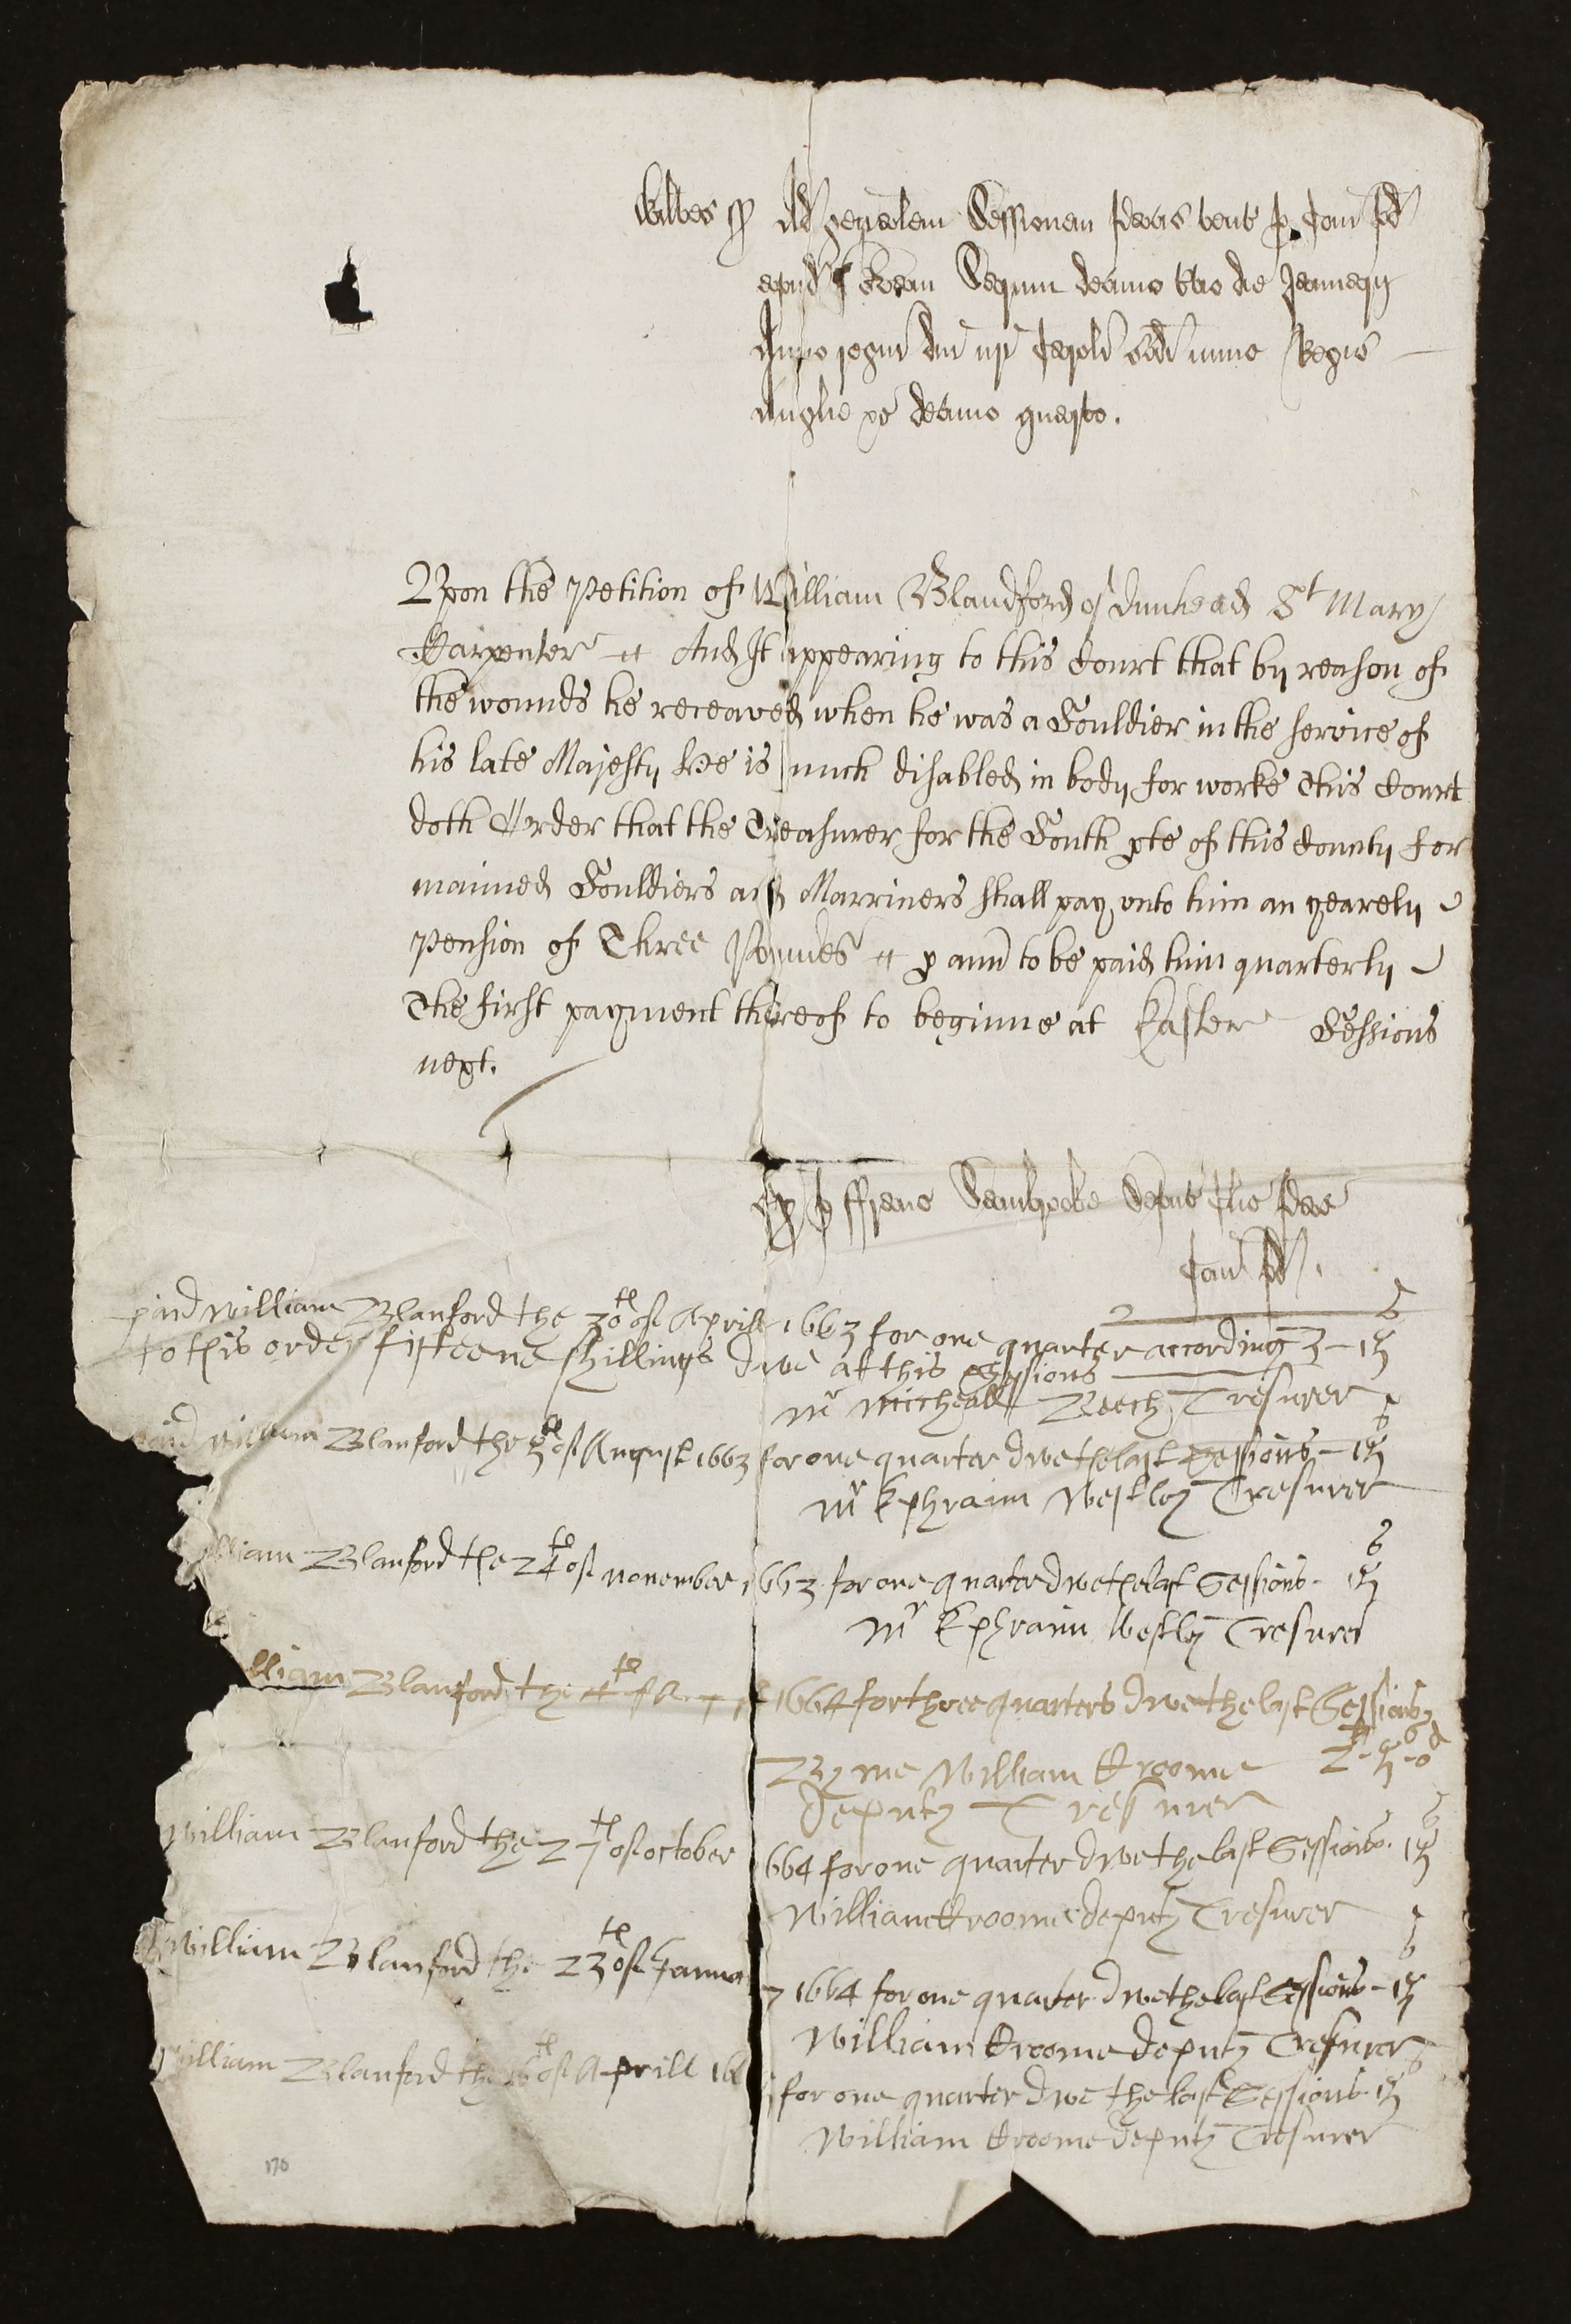 Wiltes ss Ad generalem Sessionem pacis tent p Com pd
apud novam Sarum decimo die Januarij
Anno regni dni nri Caroli scdi nunc Regis
Anglie xc decimo quarto.
Vpon the Petition of William Blandford of dunhead St Mary
Carpenter And It appearing to this Court that by reason of
the wounds he receaved when he was a Souldier in the service of
his late Majesty Hee is much disabled in body for worke This Court
doth Order that the Treasurer for the South pte of this County for
maimed Souldiers and Marriners shall pay vnto him an yearely
Pension of Three Poundes p ann to be paid him quarterly
The first payment thereof to beginne at Easter Sessions
next.
Ex p ffranc Sambrooke Deput Clic pacs
Com pd.
paid William Blanford the 30th of Aprill 1663 for one quarter according 3 - 15 s
to this order fifteene shillings dwe at this Sessions
Mr Micheall Beech Tresurer
paid William Blanford the 5th of August 1663 for one quarter dwe the last Sessions - 15 s
Mr Ephraim Westley Tresurer
lliam Blanford the 24th of november 1663 for one quarter dwe the last Sessions - 15 s
Mr Ephraim Westley Tresurer
lliam Blanford the 4th 1664 for three quarters dwe the last Sessions
By me William Kroome 2 - 5 - 0
deputy Tresurer
William Blanford the 27th of october 664 for one quarter dwe the last Sessions. 15 s
William Kroome deputy Tresurer
William Blanford the 23th of Januar y 1664 for one quarter dwe the last Sessions - 15 s
William Kroome deputy Tresurer
William Blanford the 16th of Aprill 16 for one quarter dwe the last Sessions 15 s
William Kroome deputy Tresurer
170